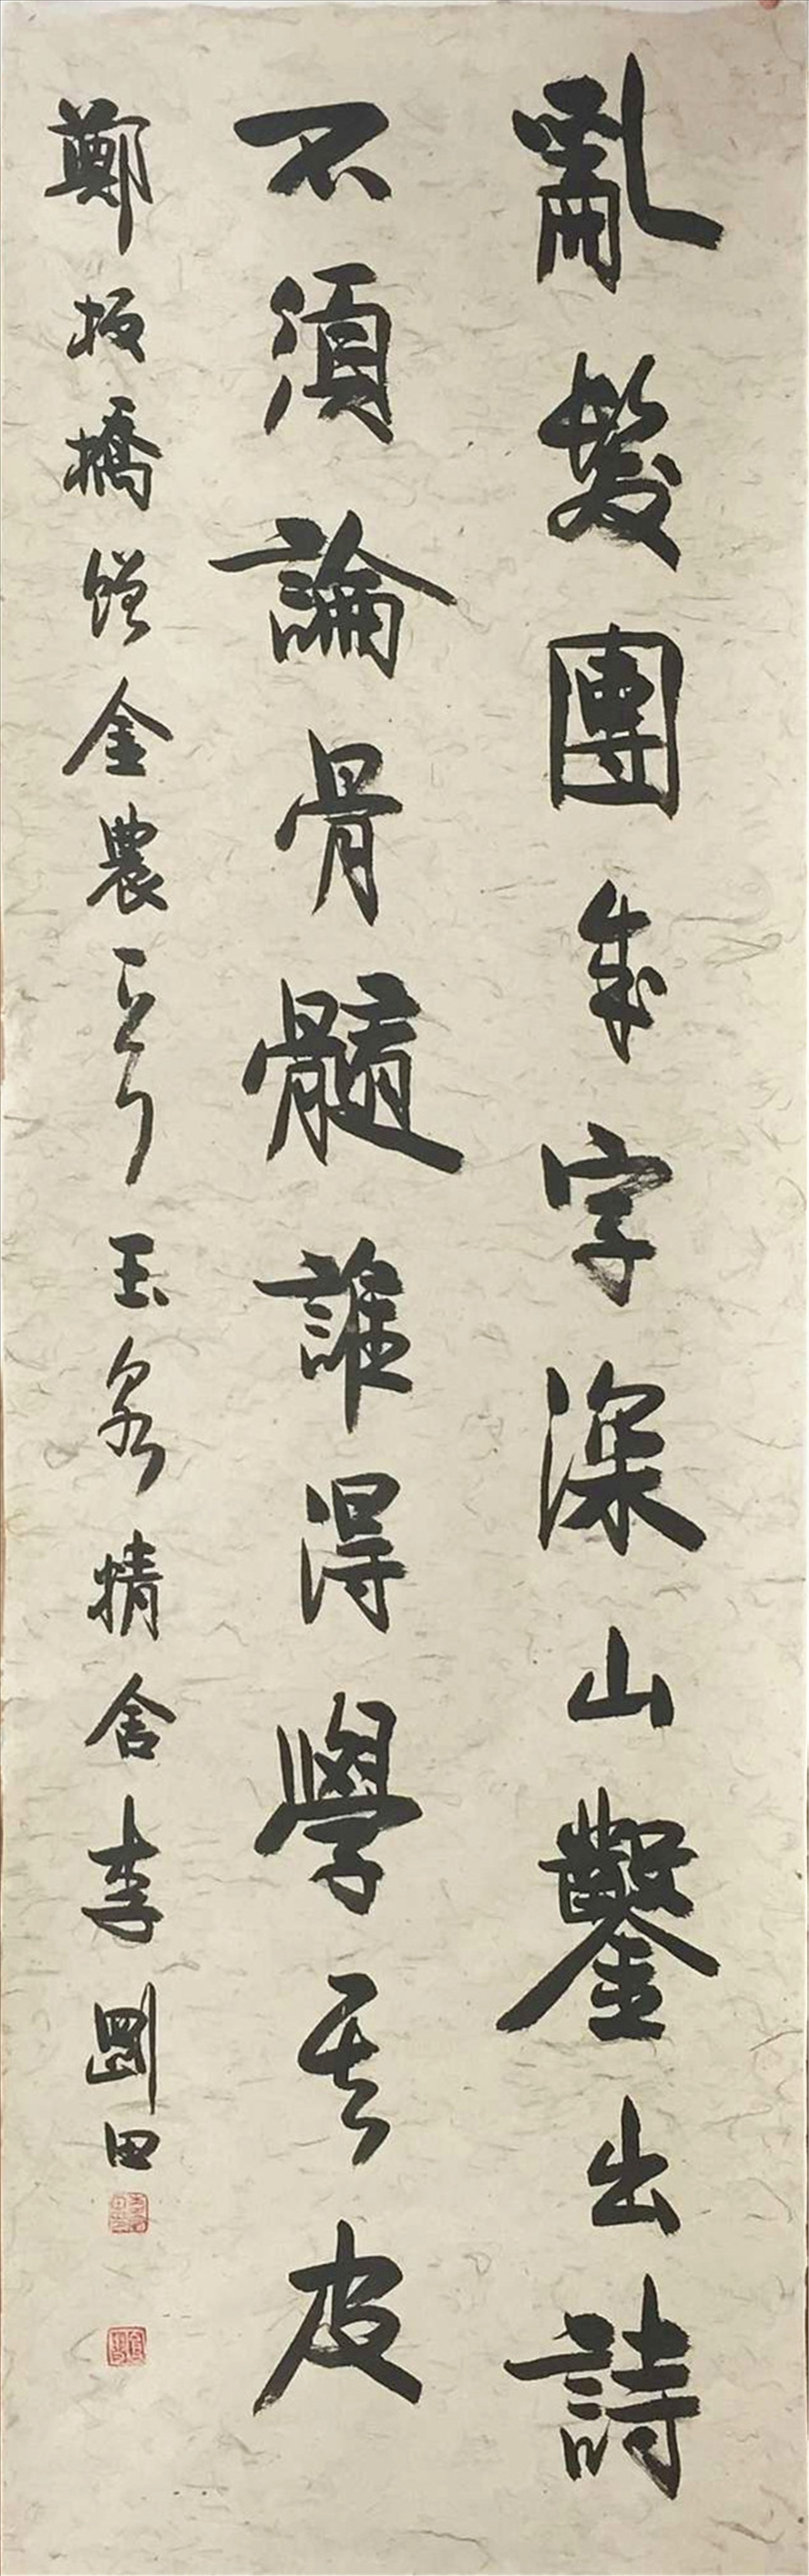 亂髮團成字深山鑿出詩
不須論骨髓誰得學其皮
鄭板橋贈金農句玉泉精舍李剛田